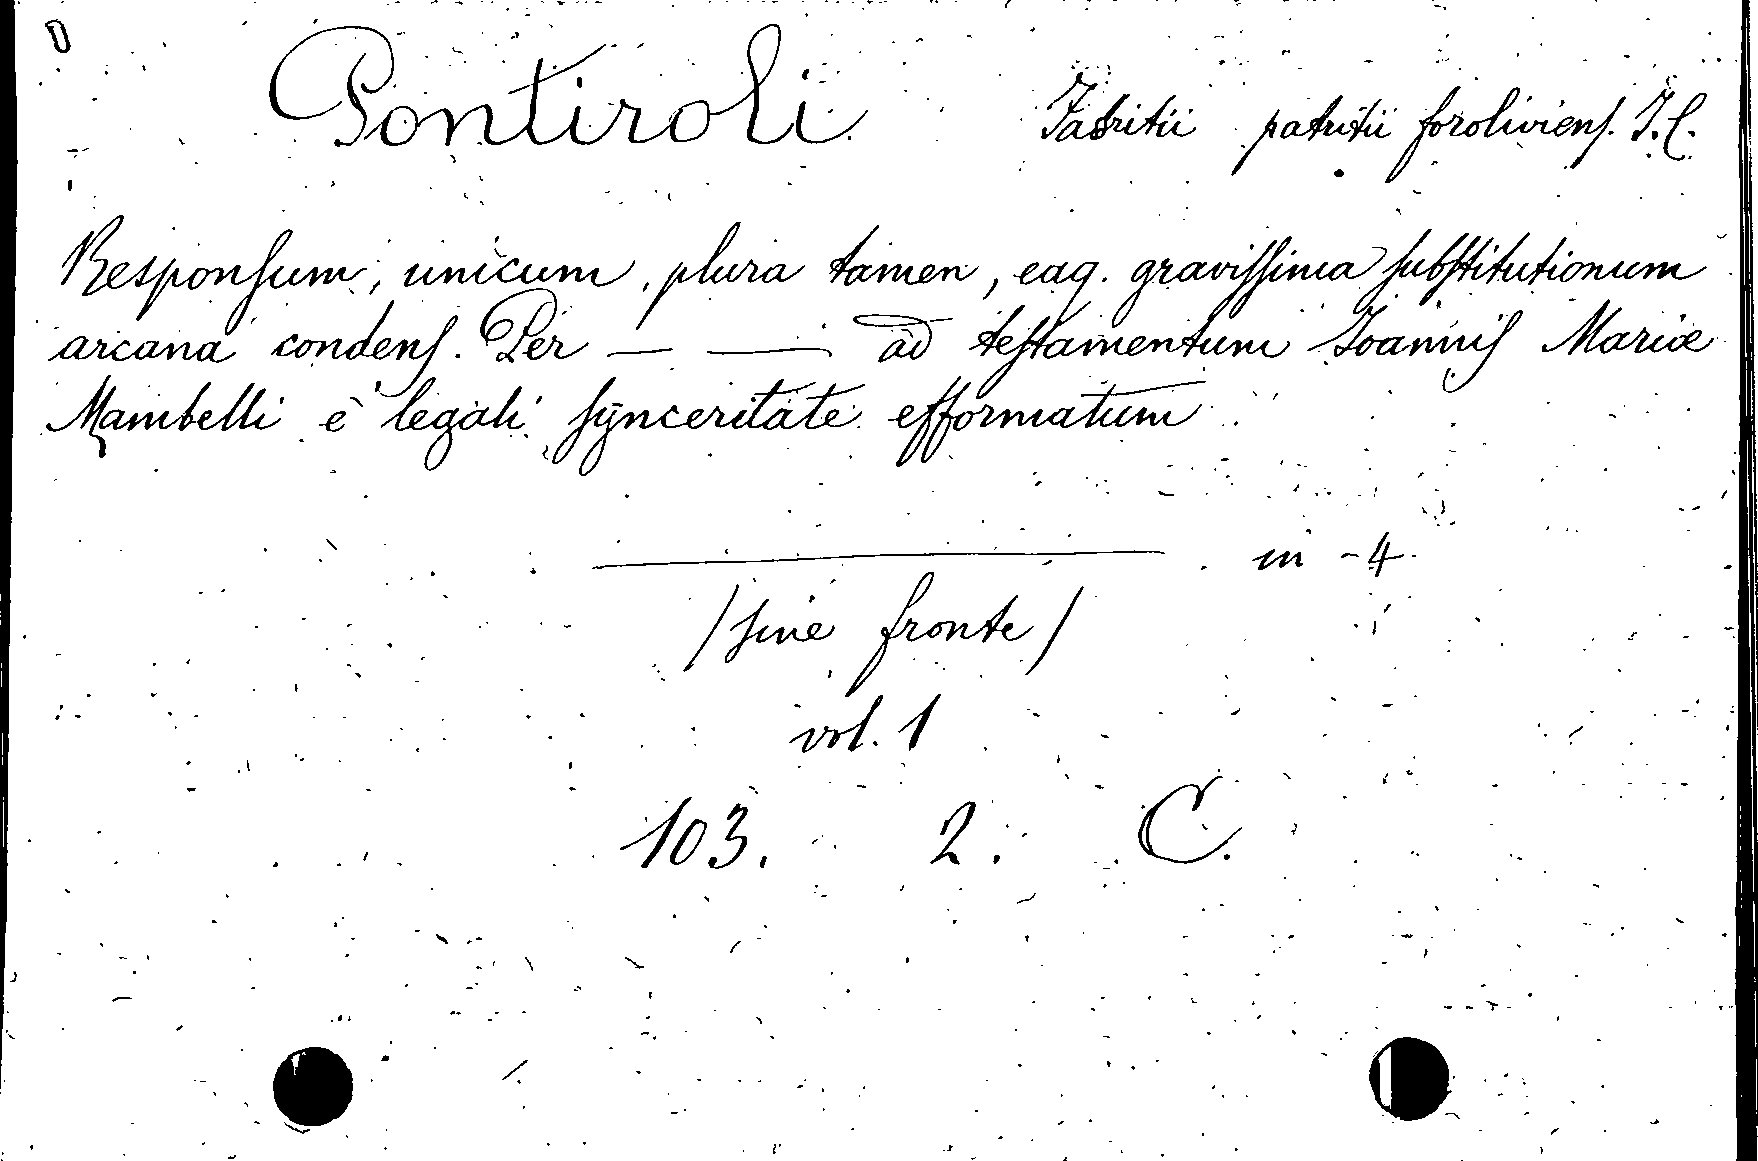 Pontiroli Fabritii patritii foroliviens. I. C.
Responsum, unicum, plura tamen, eaq. gravissima substitutionum
arcana condens. Per — — ad testamentum Joannis Mariæ
Mambelli è legali synceritate efformatum
in -4
/sine fronte/
vol. 1
103. 2. C.